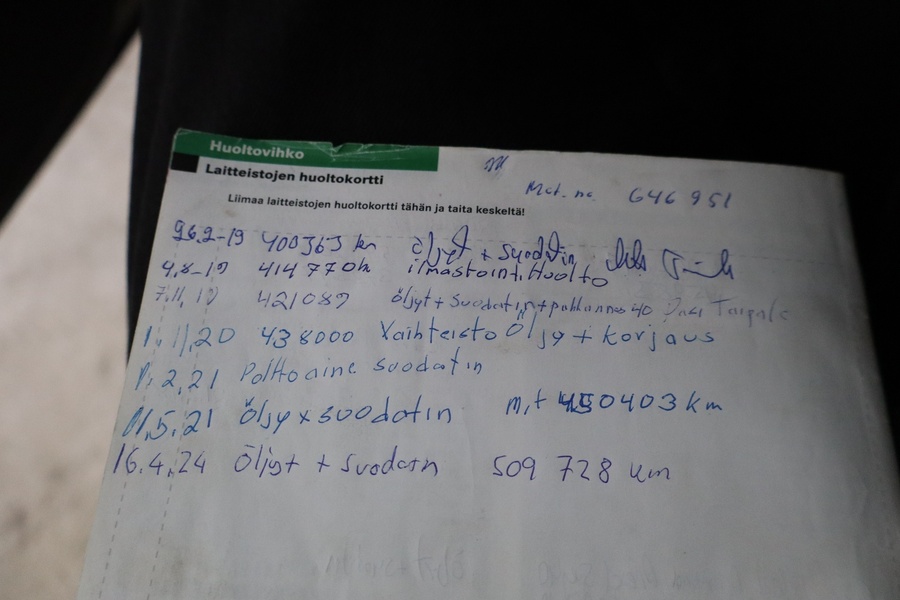 Huoltovihko
Laitteistojen huoltokortti
Liimaa laitteistojen huoltokortti tähän ja taita keskeltä!
Mot. no. 646 951
26.2-19 400363 km öljyt + suodatin
4.8-19 414 770 km ilmastointi, Huolto
7.11.19 421089 öljyt + suodatin + Pasi Taipale
1.11.20 438000 Vaihteisto Öljy + korjaus
2.21 Polttoaine suodatin
11.5.21 öljy x suodatin m,t 450403 km
16.4.24 Öljyt + suodatn 509 728 km